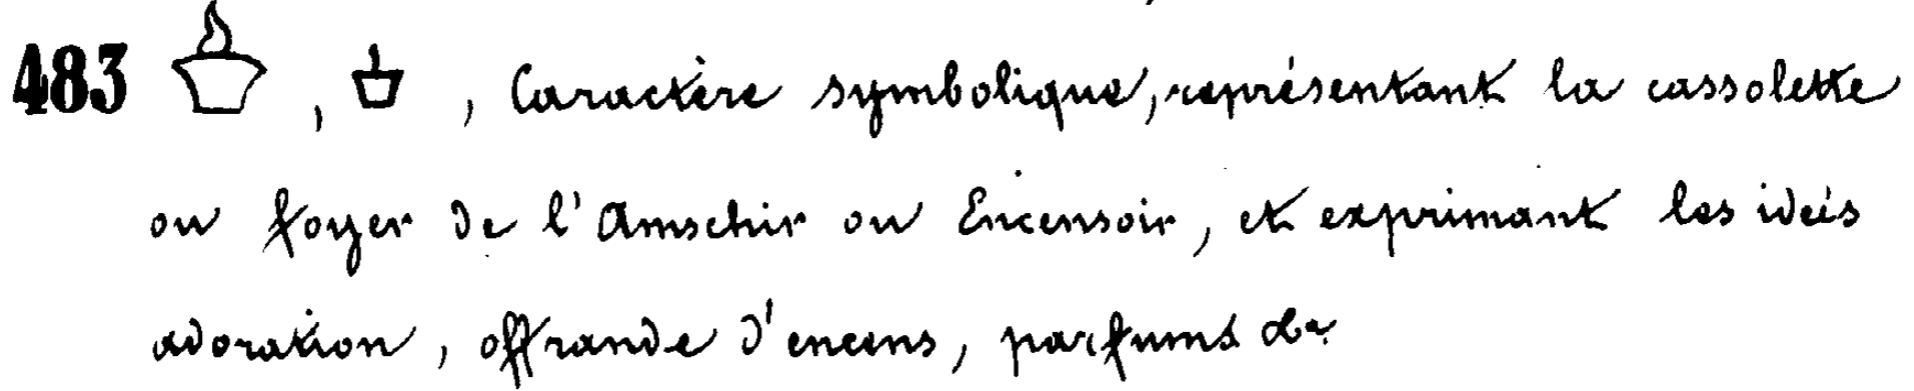 483 , , Caractère symbolique, représentant la cassolette
ou foyer de l'Amschir ou Encensoir, et exprimant les ideés
adoration, offrande d'encens, parfums &c.